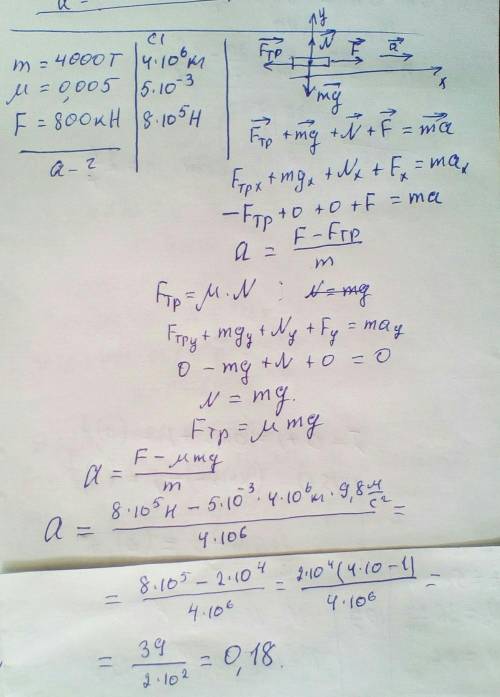 СИ
m = 4000т 4·10⁶кг
μ = 0,005 5·10⁻³
F = 800кН 8·10⁵Н
a - ?
y
N⃗
F⃗тр F⃗ a⃗
x
mg⃗
F⃗тр + mg⃗ + N⃗ + F⃗ = ma⃗
Fтрₓ + mgₓ + Nₓ + Fₓ = maₓ
-Fтр + 0 + 0 + F = ma
a = (F - Fтр)/m
Fтр = μ·N : N = mg
Fтрy + mgy + Ny + Fy = may
0 - mg + N + 0 = 0
N = mg.
Fтр = μmg
a = (F - μmg)/m
a = (8·10⁵Н - 5·10⁻³·4·10⁶кг·9,8 м/с²)/(4·10⁶) =
= (8·10⁵ - 2·10⁴)/(4·10⁶) = (2·10⁴(4·10 - 1))/(4·10⁶) =
= 39/(2·10²) = 0,18.